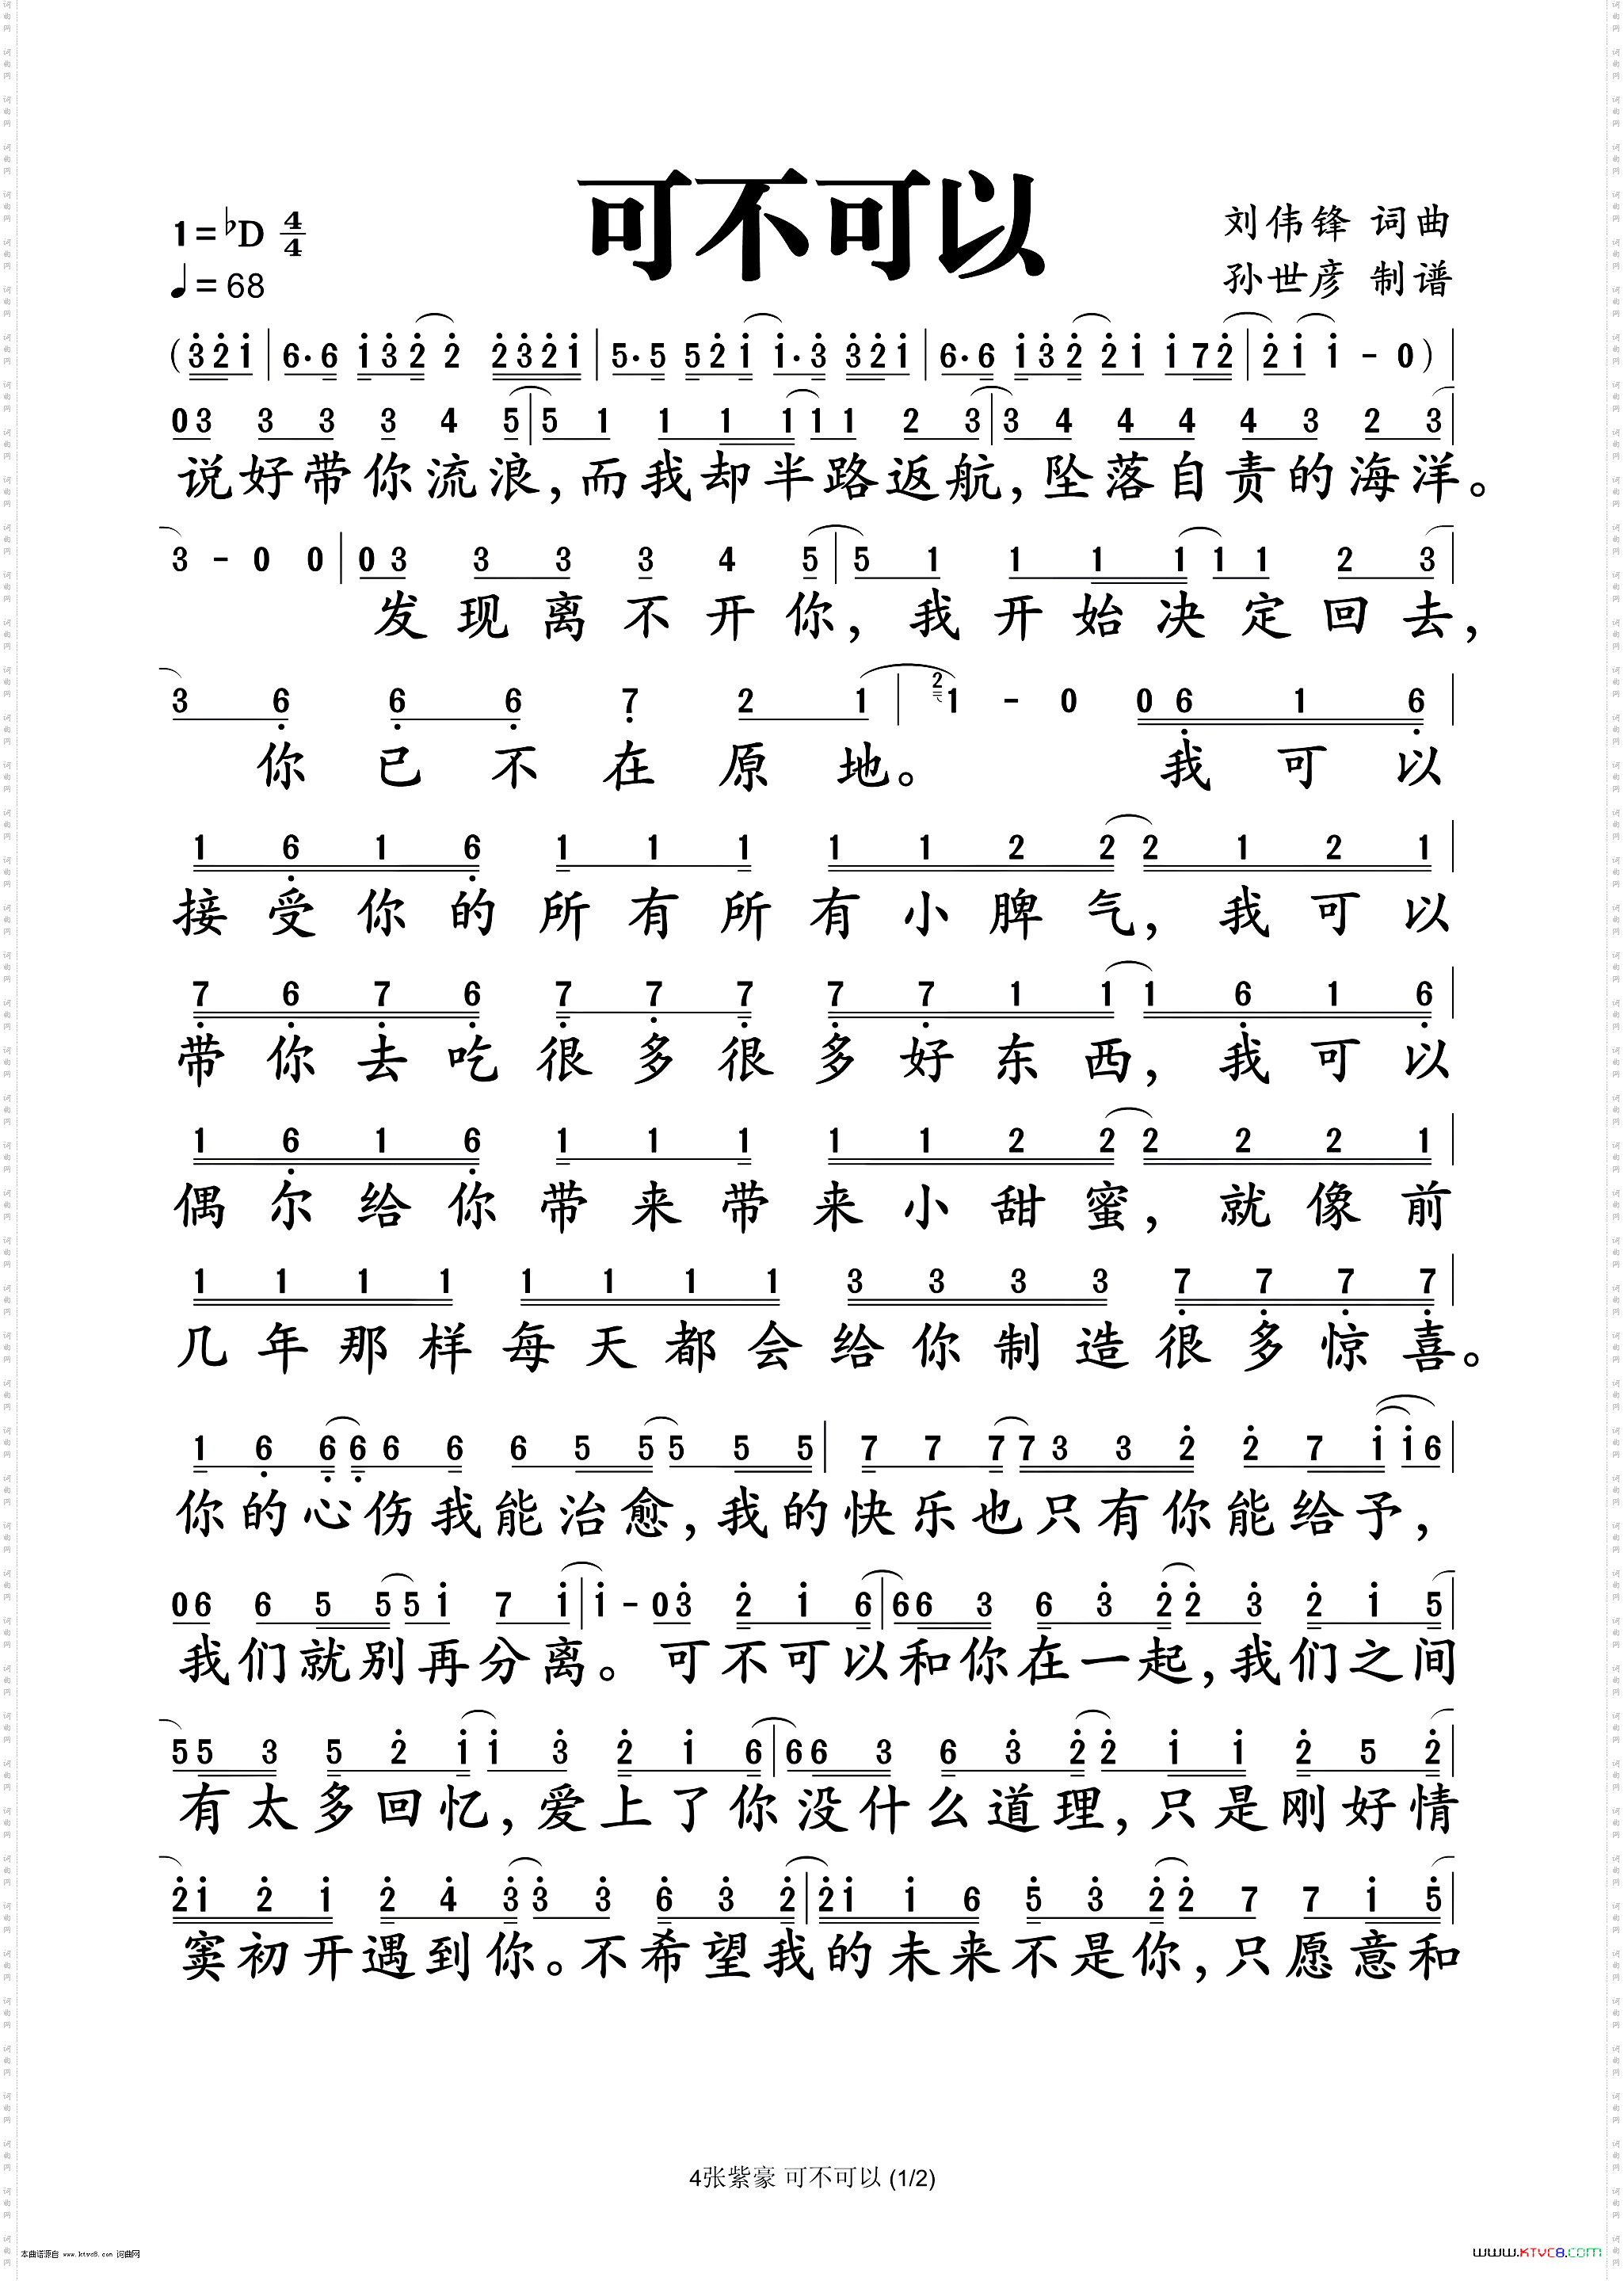 可不可以
1=♭D 4/4
♩=68
刘伟锋 词曲
孙世彦 制谱
(3̇2̇1̇ | 6·6 1̇3̇2̇ 2̇ 2̇3̇2̇1̇ | 5·5 521̇ 1̇·3̇ 3̇2̇1̇ | 6·6 1̇3̇2̇ 2̇1̇ 1̇72̇ | 2̇1̇ 1̇ - 0) |
03 33 3 4 5 | 51 11 111 23 | 34 44 43 23 |
说好带你流浪,而我却半路返航,坠落自责的海洋。
3 - 0 0 | 03 33 3 4 5 | 51 11 111 23 |
发现离不开你,我开始决定回去,
36̣ 6̣6̣ 7̣ 21 | 21 - 0 06̣16̣ |
你已不在原地。 我可以
16̣16̣ 111 1122 2121 |
接受你的所有所有小脾气,我可以
7̣6̣7̣6̣ 7̣7̣7̣ 7̣7̣11 16̣16̣ |
带你去吃很多很多好东西,我可以
16̣16̣ 111 1122 2221 |
偶尔给你带来带来小甜蜜,就像前
1111 1111 3333 7̣7̣7̣7̣ |
几年那样每天都会给你制造很多惊喜。
16̣6̣ 6̣66 655 555 | 777 7332̇ 2̇71̇ 1̇6 |
你的心伤我能治愈,我的快乐也只有你能给予,
06 655 51̇ 71̇ | 1̇ - 03̇ 2̇1̇6 | 663 63̇2̇ 2̇3̇ 2̇1̇5 |
我们就别再分离。可不可以和你在一起,我们之间
553 52̇1̇ 1̇3̇ 2̇1̇6 | 663 63̇2̇ 2̇1̇1̇ 2̇52̇ |
有太多回忆,爱上了你没什么道理,只是刚好情
2̇1̇2̇1̇ 2̇4̇3̇ 3̇3̇ 63̇2̇ | 2̇1̇1̇6 53̇2̇ 2̇7 71̇5̇ |
窦初开遇到你。不希望我的未来不是你,只愿意和
4张紫豪 可不可以 (1/2)
本曲谱源自 www.ktvc8.com 词曲网
www.KTVC8.com